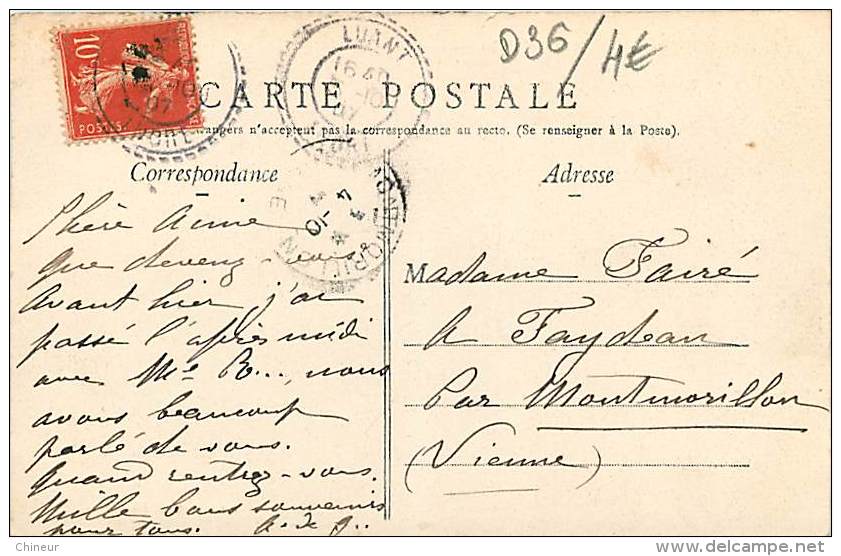 D36/4€
LUANT
16 40
07
10
POSTES
CARTE POSTALE
étrangers n'acceptent pas la correspondance au recto. (Se renseigner à la Poste).
Correspondance
Adresse
MONTMORILLON
4 -10
Chère Amie
que devenez-vous
Avant hier j'ai
passé l'après midi
avec Me R..., nous
avons beaucoup
parlé de vous.
Quand rentrez-vous.
Mille bons souvenirs
pour tous. A. de J..
Madame Fairé
A Faydeau
Par Montmorillon
(Vienne)
Chineur
www.delcampe.net